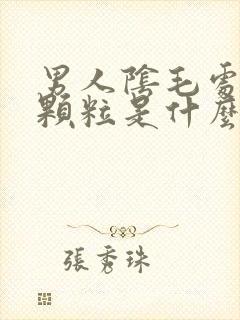 男人陰毛處
顆粒是什麼
張秀珠